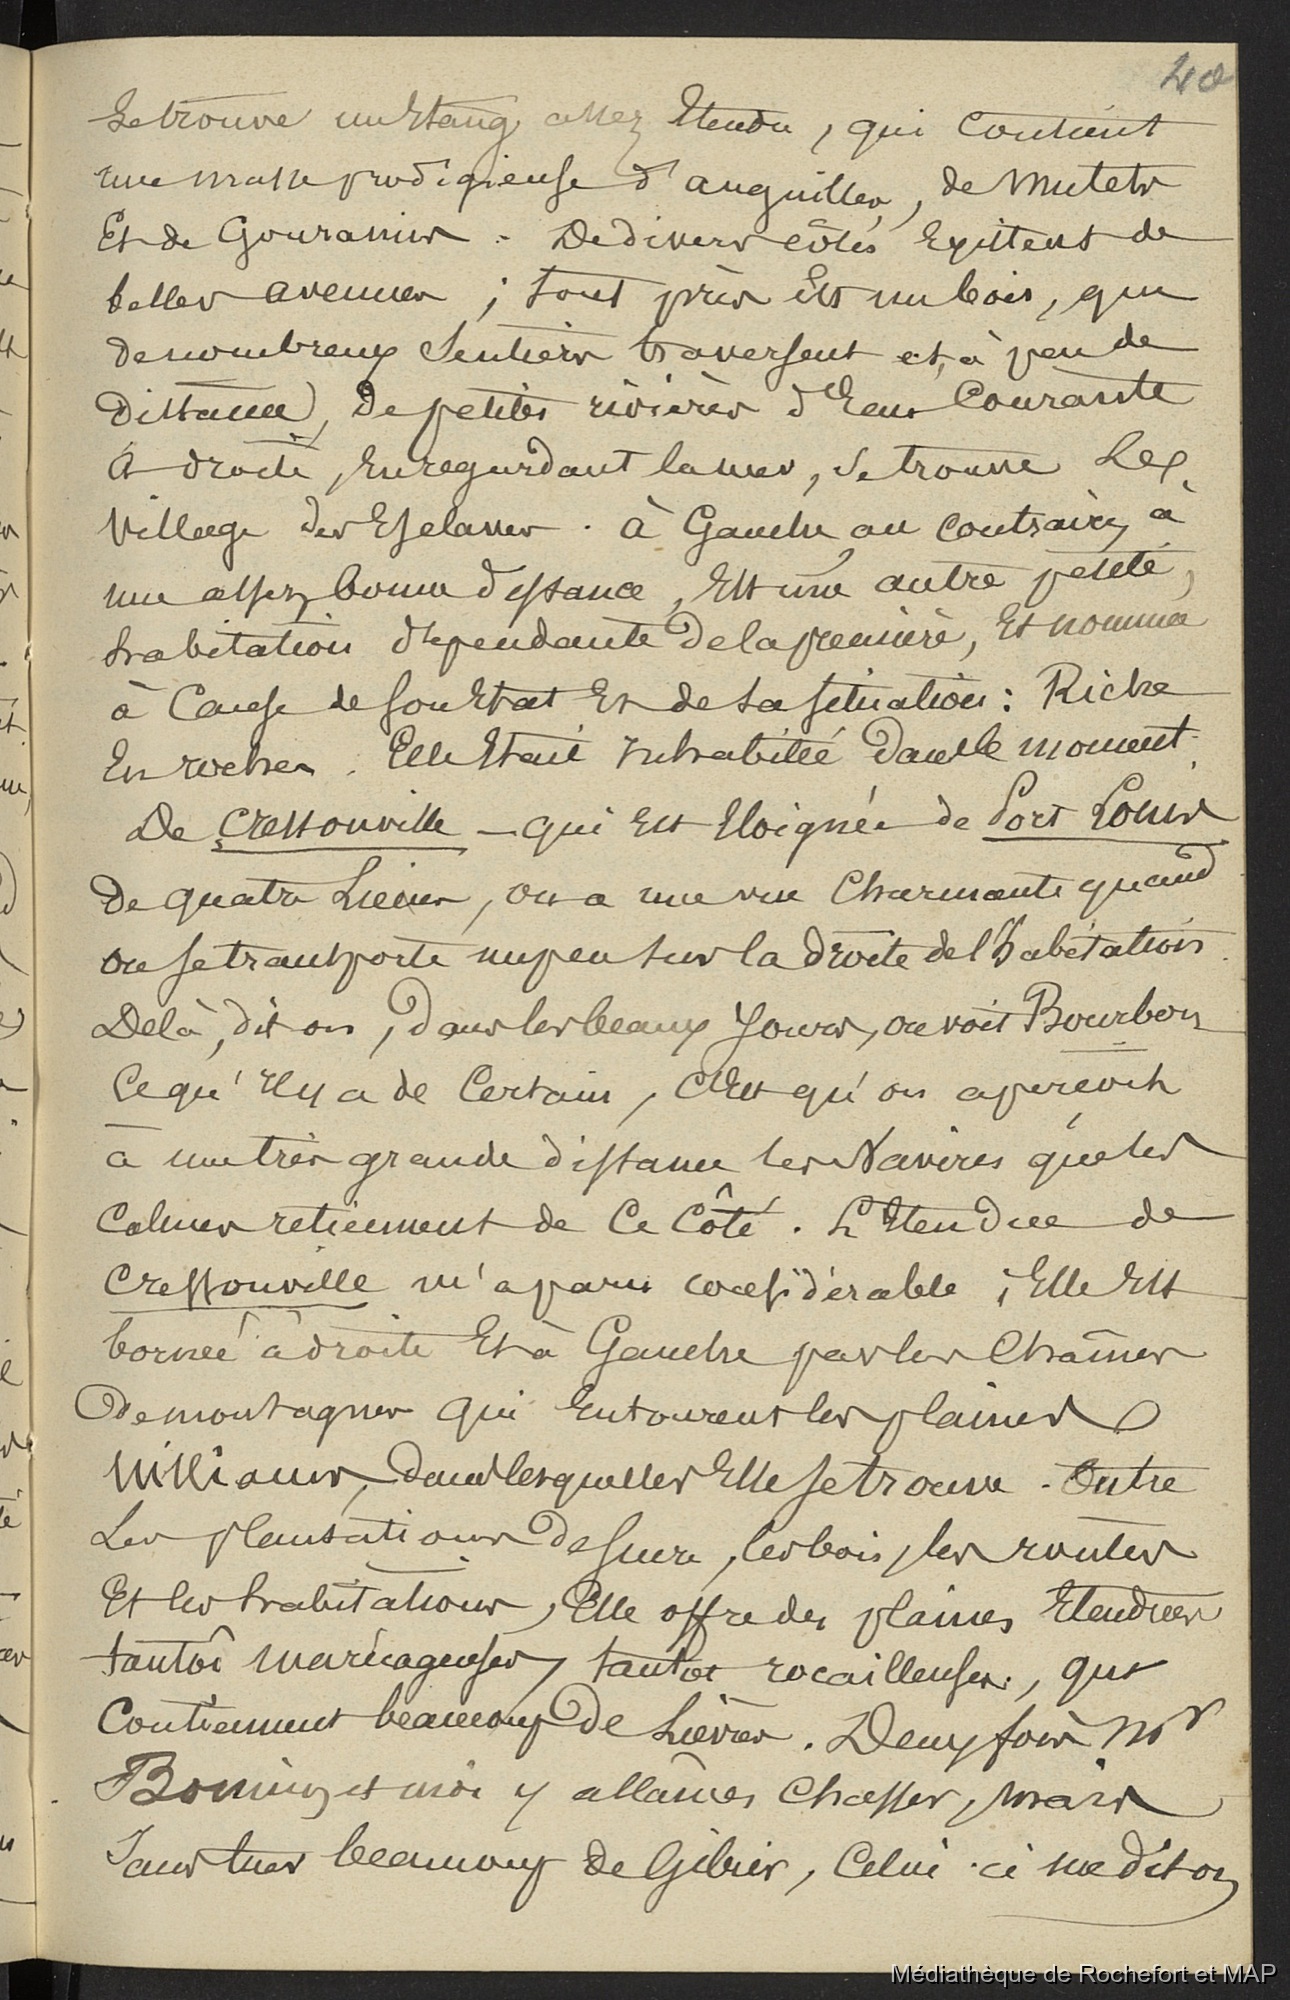 40
Se trouve un Etang assez Etendu, qui Contient
une masse prodigieuse d'anguilles, de mulets
Et de Gouramies. De divers côtés Existent de
belles avenues; tout près Est un bois, que
de nombreux Sentiers traversent et, à peu de
Distance, de petites rivières d'Eau Courante
À droite, En regardant la mer, se trouve Le
Village des Esclaves. à Gauche au contraire, à
une assez bonne distance, Est une autre petite
habitation dépendante de la première, Et nommée
à Cause de son Etat Et de sa situation: Riche
En roches. Elle Etait Inhabitée dans le moment.
De Cressonville - qui Est Eloignée de Port Louis
De quatre Lieues, on a une vue Charmante quand
on se transporte un peu sur la droite de l'habitation.
De là, dit on, dans les beaux Jours, on voit Bourbon
Ce qu'Il y a de Certain, c'Est qu'on aperçoit
à une très grande distance les Navires que les
Calmes retiennent de Ce Côté. L'Etendue de
Cressonville m'a paru considérable; Elle Est
bornée à droite Et à Gauche par les Chaînes
De montagnes qui Entourent les plaines
Williams, dans lesquelles Elle se trouve. Outre
Les plantations de sucre, les bois, les routes
Et les habitations, Elle offre des plaines Etendues
tantôt marécageuses, tantôt rocailleuses, qui
Contiennent beaucoup de Lièvres. Deux fois Mr
et moi y allâmes Chasser, mais
Sans tuer beaucoup de Gibier, Celui-ci me dit on
Médiathèque de Rochefort et MAP